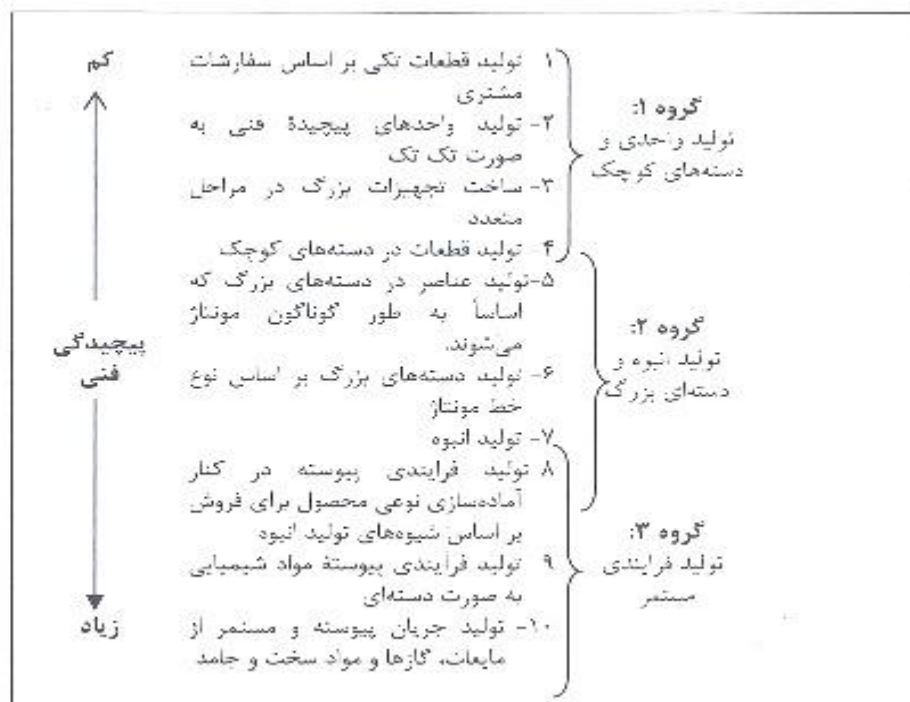 کم
پیچیدگی
فنی
زیاد
۱ تولید قطعات تکی بر اساس سفارشات
مشتری
۲- تولید واحدهای پیچیدهٔ فنی به
صورت تک تک
۳- ساخت تجهیزات بزرگ در مراحل
متعدد
۴- تولید قطعات در دسته‌های کوچک
۵-تولید عناصر در دسته‌های بزرگ که
اساساً به طور گوناگون مونتاژ
می‌شوند.
۶- تولید دسته‌های بزرگ بر اساس نوع
خط مونتاژ
۷- تولید انبوه
۸ تولید فرایندی پیوسته در کنار
آماده‌سازی نوعی محصول برای فروش
بر اساس شیوه‌های تولید انبوه
۹ تولید فرآیندی پیوستهٔ مواد شیمیایی
به صورت دسته‌ای
۱۰- تولید جریان پیوسته و مستمر از
مایعات، گازها و مواد سخت و جامد
گروه ۱:
تولید واحدی و
دسته‌های کوچک
گروه ۲:
تولید انبوه و
دسته‌ای بزرگ
گروه ۳:
تولید فرایندی
مستمر